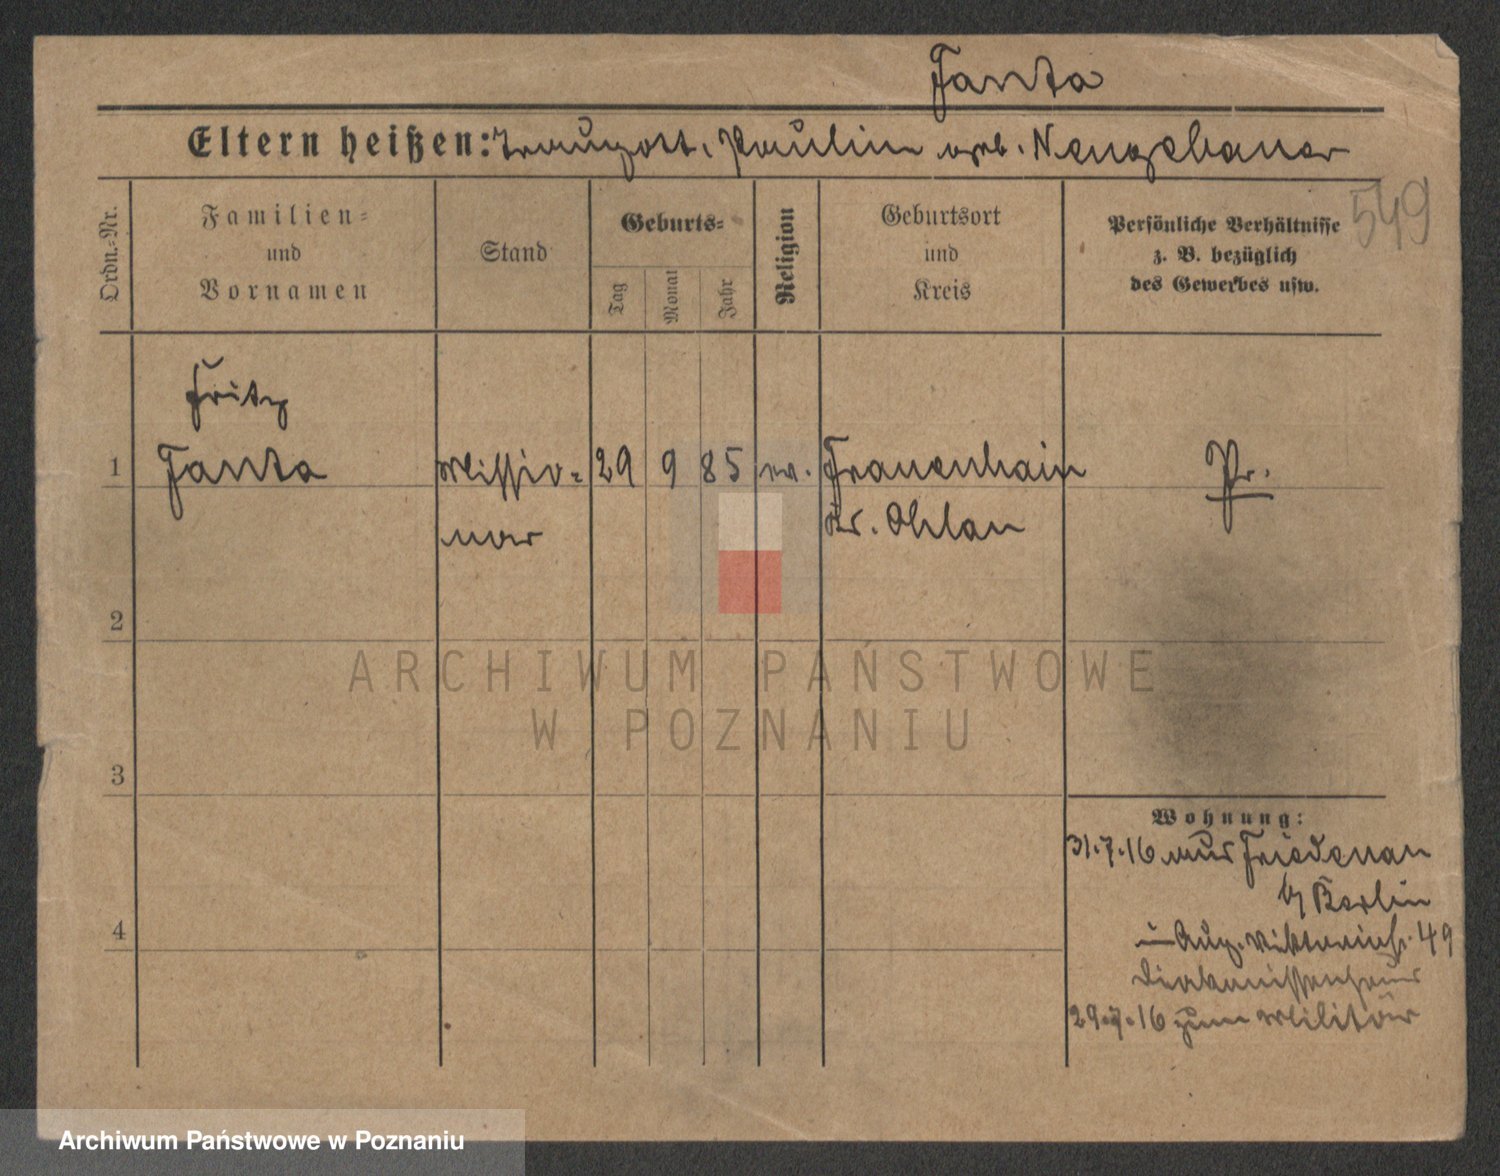 Fanta
Eltern heißen: Traugott, Paulin geb. Neugebauer
549
Ordn.-Nr.
Familien-
und
Vornamen
Stand
Geburts-
Tag
Monat
Jahr
Religion
Geburtsort
und
Kreis
Persönliche Verhältnisse
z. B. bezüglich
des Gewerbes usw.
Fritz
1 Fanta Missio- 29 9 85 ev. Frauenhain Pr.
nar Kr. Ohlau
2
3
4
Wohnung:
31.7.16 aus Friedenau
b/ Berlin
Aug. Viktoriastr. 49
Diakonissenhaus
29.7.16 zum Militär
ARCHIWUM PAŃSTWOWE
W POZNANIU
Archiwum Państwowe w Poznaniu